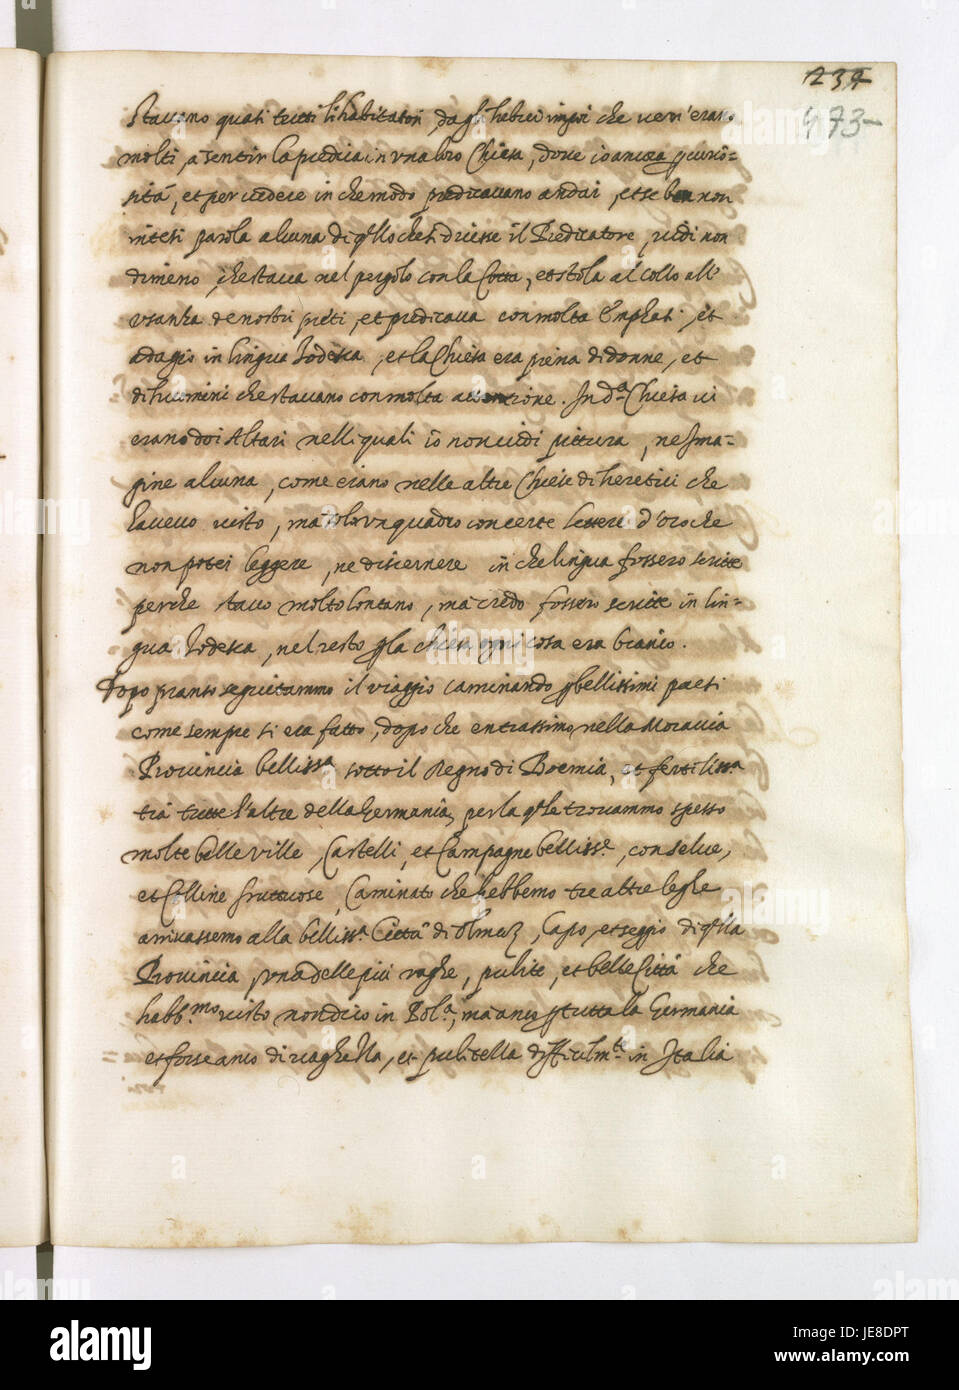 234
473
stavano quasi tutti li habitatori, da gli hebrei in poi che ve n'erano
molti, a sentir la predica in una lor Chiesa, dove io ancora p curio=
sità, et per vedere in che modo predicavano andai, et se ben non
intesi parola alcuna di qllo che si dicesse il Predicatore, vidi non
dimeno, che stava nel pergolo con la Cotta, et stola al collo all'
usanza de nostri preti, et predicava con molta Emphasi, et
adagio in lingua Todesca, et la Chiesa era piena di donne, et
di huomini che stavano con molta attentione. In da Chiesa vi
erano doi Altari nelli quali io non vidi pittura, ne Ima=
gine alcuna, come erano nelle altre Chiese di heretici che
havevo visto, mà solo un quadro con certe lettere d'oro che
non potei leggere, ne discernere in che lingua fossero scritte
perche stavo molto lontano, mà credo fossero scritte in lin=
gua Todesca, nel resto p la chiesa ogni cosa era bianco.
Dopo pranso seguitammo il viaggio caminando p bellissimi paesi
come sempre si era fatto, dopo che entrassimo nella Moravia
Provincia bellissa sotto il Regno di Boemia, et fertilissa
trà tutte l'altre della Germania, per la qle trovammo spesso
molte belle ville, Castelli, et Campagne bellisse, con selve,
et Colline fruttuose, Caminato che hebbemo tre altre leghe
arrivassemo alla bellissa Città di Olmuz, Capo, et seggio di qlla
Provincia, una delle più vaghe, pulite, et belle Città che
habbmo visto non dico in Pola, mà anco p tutta la Germania
et forse anco di vaghezza, et pulitezza difficilmte in Italia
alamy
JE8DPT
www.alamy.com